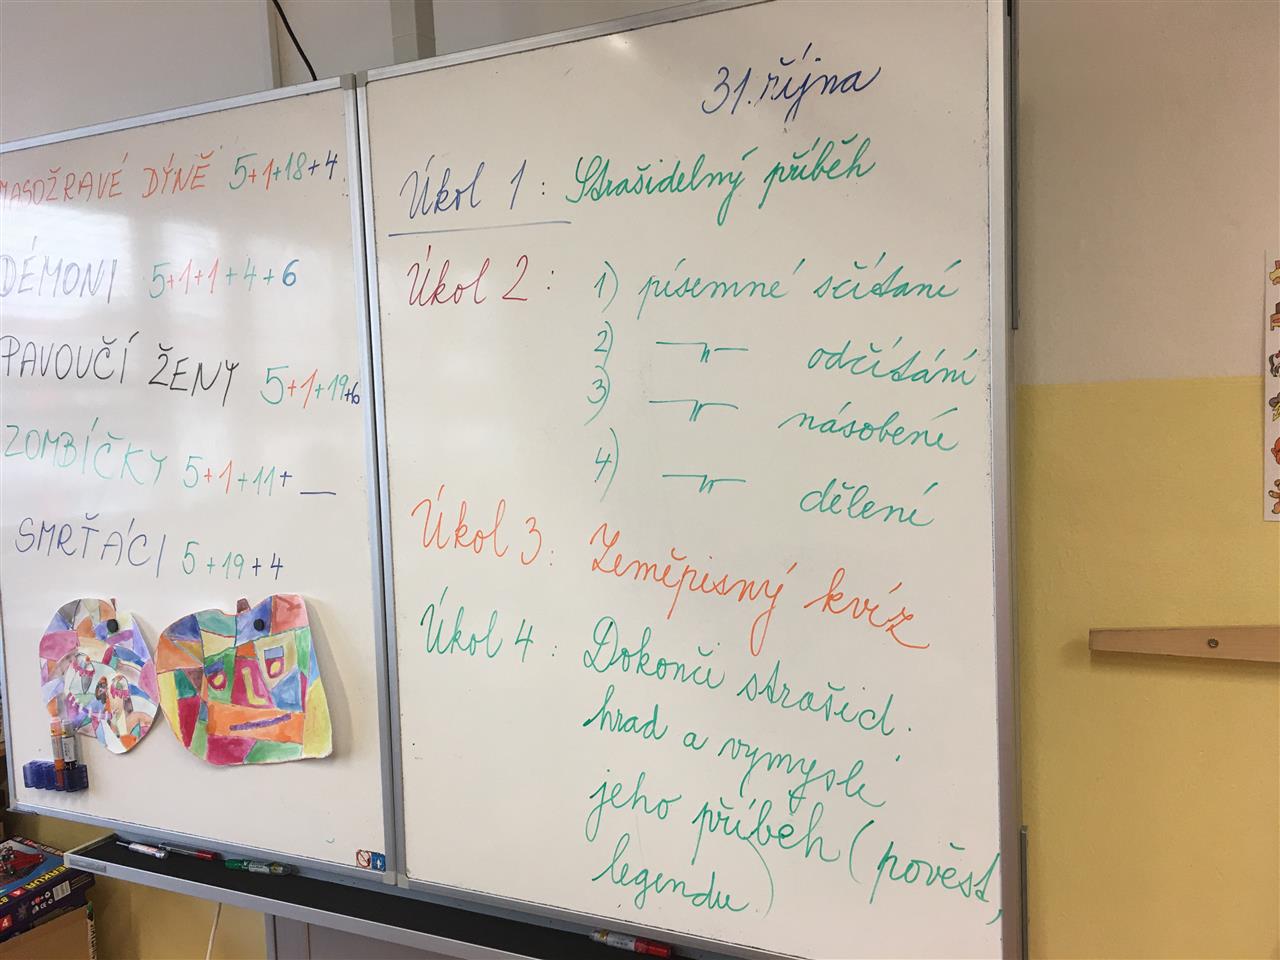 MASOŽRAVÉ DÝNĚ 5+1+18+4
DÉMONI 5+1+1+4+6
PAVOUČÍ ŽENY 5+1+19+6
ZOMBÍČKY 5+1+11+__
SMRŤÁCI 5+19+4
31. října
Úkol 1: Strašidelný příběh
Úkol 2: 1) písemné sčítaní
2) —〃— odčítání
3) —〃— násobení
4) —〃— dělení
Úkol 3: Zeměpisný kvíz
Úkol 4: Dokonči strašid.
hrad a vymysli
jeho příběh (pověst,
legendu)
MERKUR